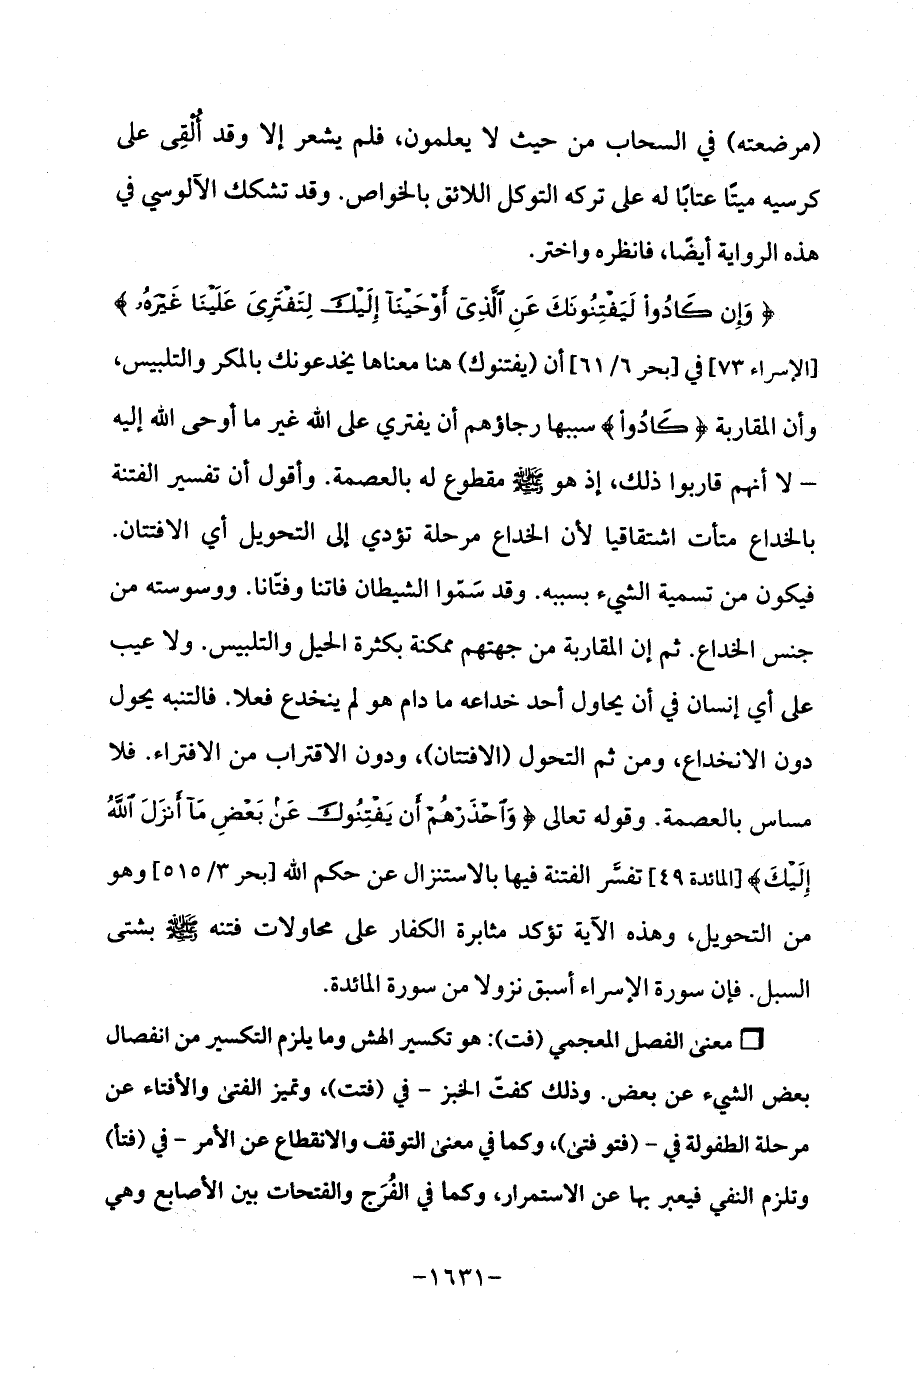 (مرضعته) في السحاب من حيث لا يعلمون، فلم يشعر إلا وقد أُلْقِى على
كرسيه ميتًا عتابًا له على تركه التوكل اللائق بالخواص. وقد تشكك الآلوسي في
هذه الرواية أيضًا، فانظره واختر.
﴿ وَإِن كَادُواْ لَيَفْتِنُونَكَ عَنِ ٱلَّذِىٓ أَوْحَيْنَآ إِلَيْكَ لِتَفْتَرِىَ عَلَيْنَا غَيْرَهُۥ ﴾
[الإسراء ٧٣] في [بحر ٦/ ٦١] أن (يفتنوك) هنا معناها يخدعونك بالمكر والتلبيس،
وأن المقاربة ﴿ كَادُواْ ﴾ سببها رجاؤهم أن يفتري على الله غير ما أوحى الله إليه
– لا أنهم قاربوا ذلك، إذ هو ﷺ مقطوع له بالعصمة. وأقول أن تفسير الفتنة
بالخداع متأت اشتقاقيا لأن الخداع مرحلة تؤدي إلى التحويل أي الافتتان.
فيكون من تسمية الشيء بسببه. وقد سَمّوا الشيطان فاتنا وفتّانا. ووسوسته من
جنس الخداع. ثم إن المقاربة من جهتهم ممكنة بكثرة الحيل والتلبيس. ولا عيب
على أي إنسان في أن يحاول أحد خداعه ما دام هو لم ينخدع فعلا. فالتنبه يحول
دون الانخداع، ومن ثم التحول (الافتتان)، ودون الاقتراب من الافتراء. فلا
مساس بالعصمة. وقوله تعالى ﴿ وَٱحْذَرْهُمْ أَن يَفْتِنُوكَ عَنۢ بَعْضِ مَآ أَنزَلَ ٱللَّهُ
إِلَيْكَ ﴾ [المائدة ٤٩] تفسَّر الفتنة فيها بالاستنزال عن حكم الله [بحر ٣/ ٥١٥] وهو
من التحويل، وهذه الآية تؤكد مثابرة الكفار على محاولات فتنه ﷺ بشتى
السبل. فإن سورة الإسراء أسبق نزولا من سورة المائدة.
❒ معنى الفصل المعجمي (فت): هو تكسير الهش وما يلزم التكسير من انفصال
بعض الشيء عن بعض. وذلك كفتّ الخبز – في (فتت)، وتميز الفتى والأفتاء عن
مرحلة الطفولة في – (فتو فتى)، وكما في معنى التوقف والانقطاع عن الأمر – في (فتأ)
وتلزم النفي فيعبر بها عن الاستمرار، وكما في الفُرَج والفتحات بين الأصابع وهي
–١٦٣١–